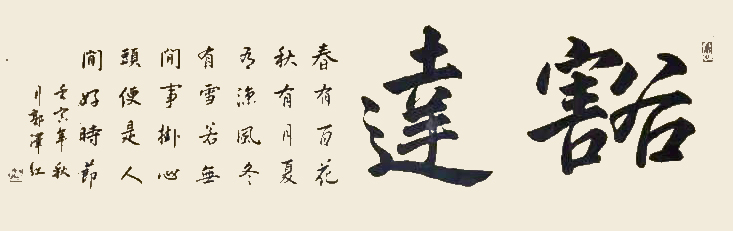 豁達
春有百花
秋有月夏
有涼風冬
有雪若無
閒事掛心
頭便是人
間好時節
壬寅年秋
月郭澤紅